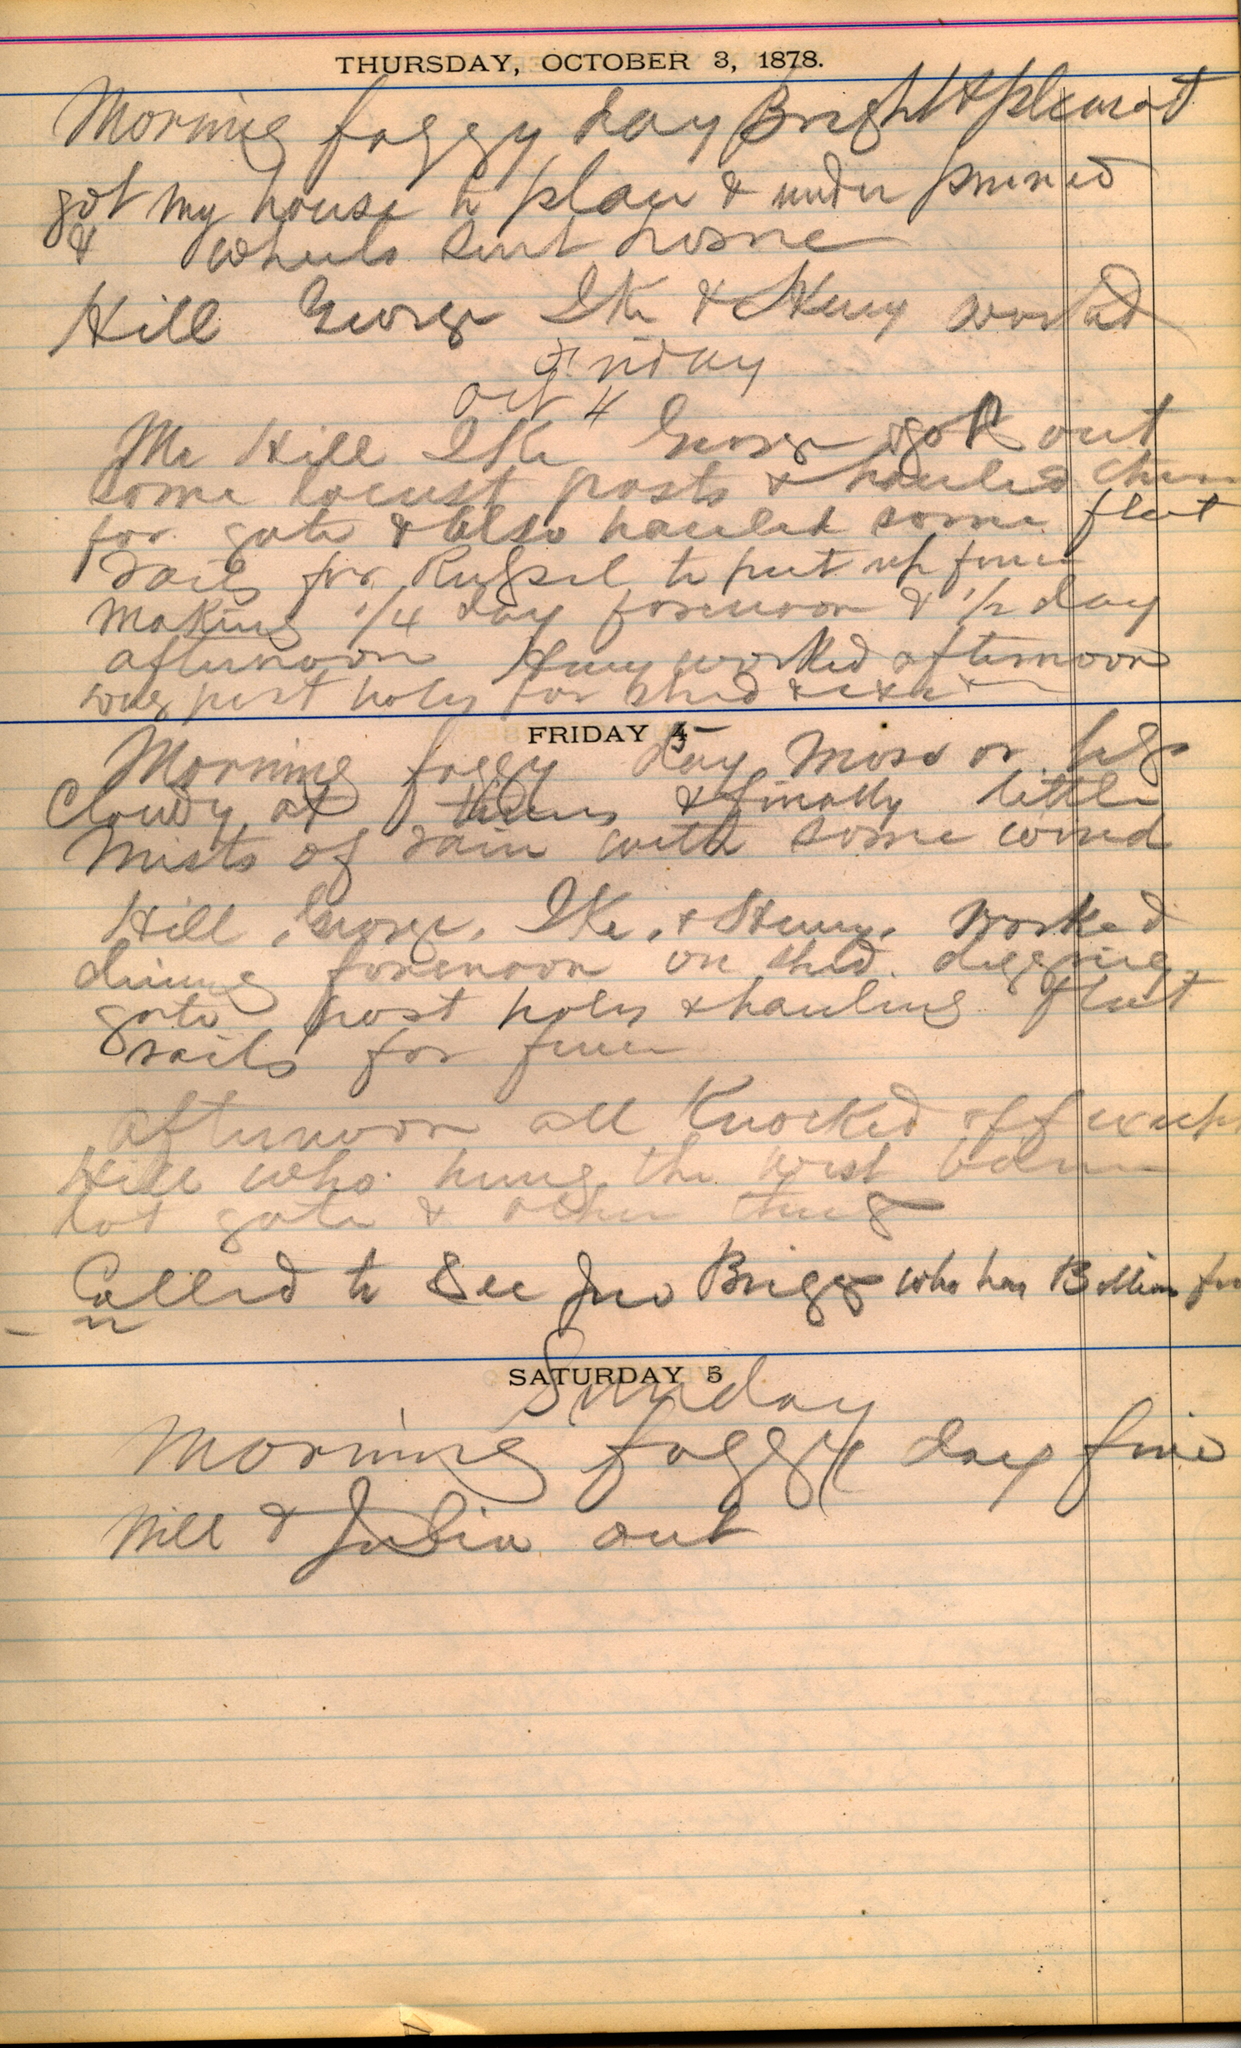 THURSDAY, OCTOBER 3, 1878.
Morning foggy day Bright & pleasat
got my house in place & under pinned
& wheels sent home
Hill George Ike & Henry worked
Friday
Oct 4
Mr Hill Ike George got out
some locust posts & hauled them
for gate & also hauled some flat
rails for Russel to put up fence
making 1/4 day forenoon & 1/2 day
afternoon Henry worked afternoon
post holes for shed &
FRIDAY 4
Morning foggy day more or less
Cloudy at times & finally little
mists of rain with some wind
Hill, George, Ike, & Henry, worked
during forenoon on shed. digging
gate post holes & hauling flat
rails for fence
afternoon all Knocked off except
Hill who hung the west barn
lot gate & other things
Called to See Jno Briggs who has Billious
SATURDAY 5
Sunday
Morning foggy day fine
Will & Julia out